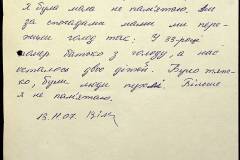 я була мала не пам'ятаю. Ал
за споcадами мами ми пере
жили голод так. У 33-році
помер батько з голоду, а нас
осталось двоє дітей. Було тяж-
ко, були люди пухлі. Більше
я не пам'ятаю.
13.11.07.